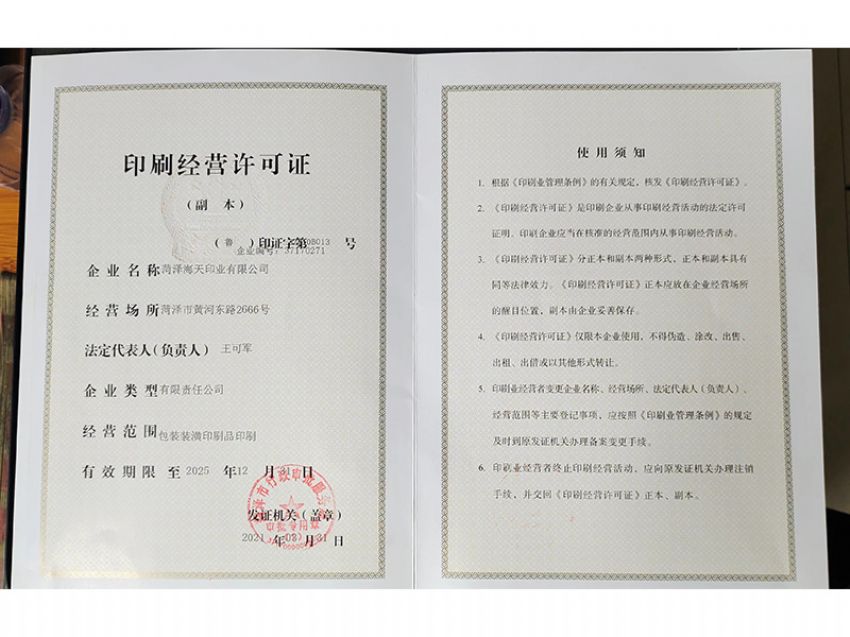 印刷经营许可证
（副 本）
（鲁）印证字第 0B013 号
企业编号：37170271
企业名称 菏泽海天印业有限公司
经营场所 菏泽市黄河东路2666号
法定代表人(负责人) 王可军
企业类型 有限责任公司
经营范围 包装装潢印刷品印刷
有效期限至 2025 年 12 月 31 日
发证机关（盖章）
审批专用章
2021 年 03 月 31 日
使用须知
1. 根据《印刷业管理条例》的有关规定，核发《印刷经营许可证》。
2. 《印刷经营许可证》是印刷企业从事印刷经营活动的法定许可
证明。印刷企业应当在核准的经营范围内从事印刷经营活动。
3. 《印刷经营许可证》分正本和副本两种形式，正本和副本具有
同等法律效力。《印刷经营许可证》正本应放在企业经营场所
的醒目位置，副本由企业妥善保存。
4. 《印刷经营许可证》仅限本企业使用，不得伪造、涂改、出售、
出租、出借或以其他形式转让。
5. 印刷业经营者变更企业名称、经营场所、法定代表人（负责人）、
经营范围等主要登记事项，应按照《印刷业管理条例》的规定
及时到原发证机关办理备案变更手续。
6. 印刷业经营者终止印刷经营活动，应向原发证机关办理注销
手续，并交回《印刷经营许可证》正本、副本。